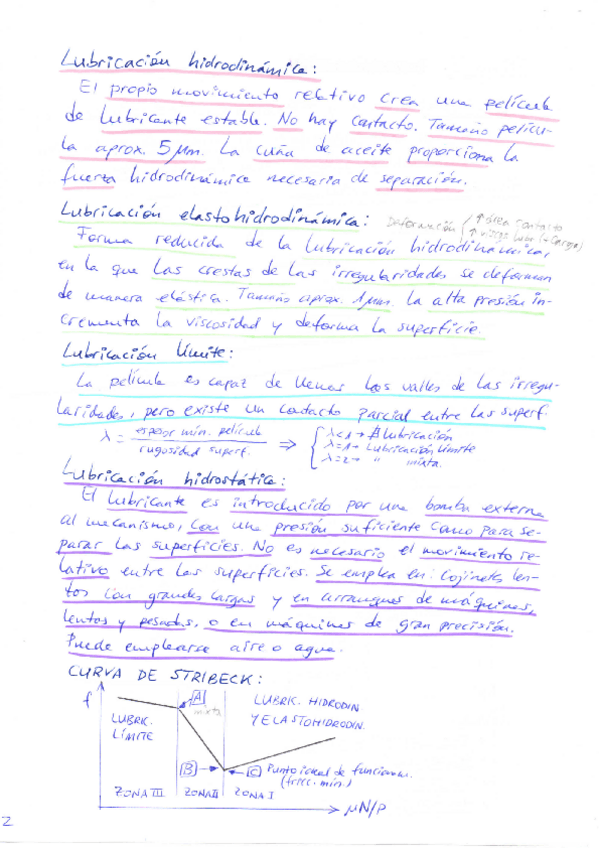 Lubricación hidrodinámica:
El propio movimiento relativo crea una película
de lubricante estable. No hay contacto. Tamaño pelícu-
la aprox. 5 µm. La cuña de aceite proporciona la
fuerza hidrodinámica necesaria de separación.
Lubricación elastohidrodinámica: Deformación / ↑ área contacto
↑ (+ carga)
Forma reducida de la lubricación hidrodinámica,
en la que las crestas de las irregularidades se deforman
de manera elástica. Tamaño aprox. 1 µm. La alta presión in-
crementa la viscosidad y deforma la superficie.
Lubricación límite:
La película es capaz de llenar los valles de las irregu-
laridades, pero existe un contacto parcial entre las superf.
λ = espesor mín. película / rugosidad superf. ⇒ { λ<1 → ∄ lubricación
λ=1 → Lubricación límite
λ=2 → " mixta.
Lubricación hidrostática:
El lubricante es introducido por una bomba externa
al mecanismo, con una presión suficiente como para se-
parar las superficies. No es necesario el movimiento re-
lativo entre las superficies. Se emplea en: Cojinetes len-
tos con grandes cargas y en arranques de máquinas,
lentos y pesados, o en máquinas de gran precisión.
Puede emplearse aire o agua.
CURVA DE STRIBECK:
f
A
mixta
LUBRIC. LÍMITE
LUBRIC. HIDRODIN
Y ELASTOHIDRODIN.
B
C Punto ideal de funcionam.
(fricc. mín.)
ZONA III ZONA II ZONA I
µN/P
2